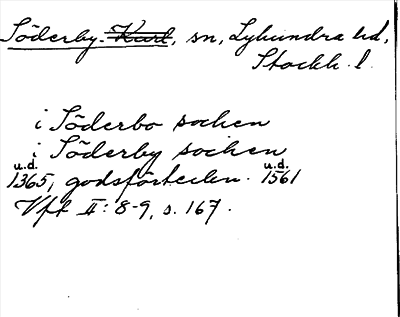 Söderby-Karl, sn, Lyhundra hd,
Stockh. l.
i Söderbo socken
i Söderby socken
u.d. u.d.
1365, godsförteckn. 1561
Vff II: 8-9, s. 167.